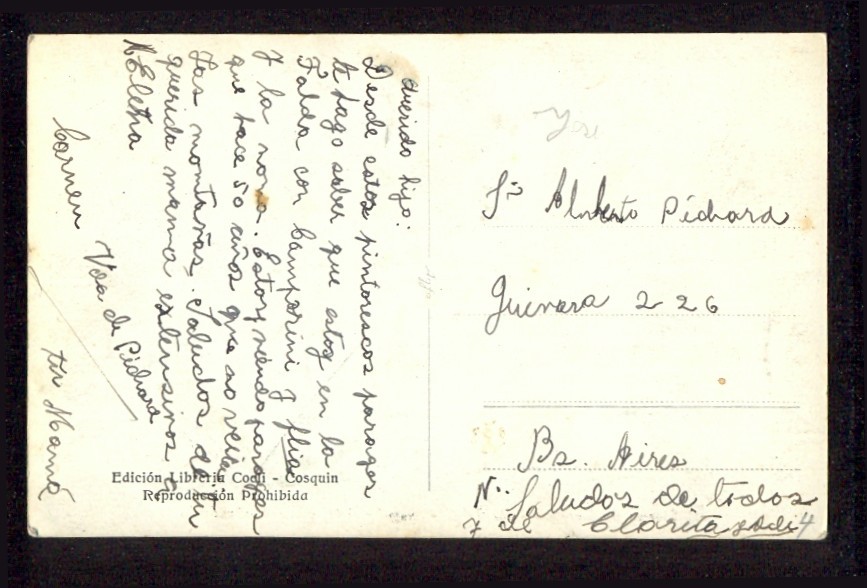 Querido hijo:
Desde estos pintorescos parages
te hago saber que estoy en la
Falda con Camporini y flia
y la nona. Estoy viendo parages
que hace 50 años que no veia
Las montañas. Saludos de tu
querida mama extensivos a
Eletra
Carmen
Vda de Pidrara
tu Mamá
Edición Librería Codi - Cosquin
Reproducción Prohibida
Sr Alberto Pidrara
Guevara 226
Bs. Aires
Saludos de todos
y de Clarita